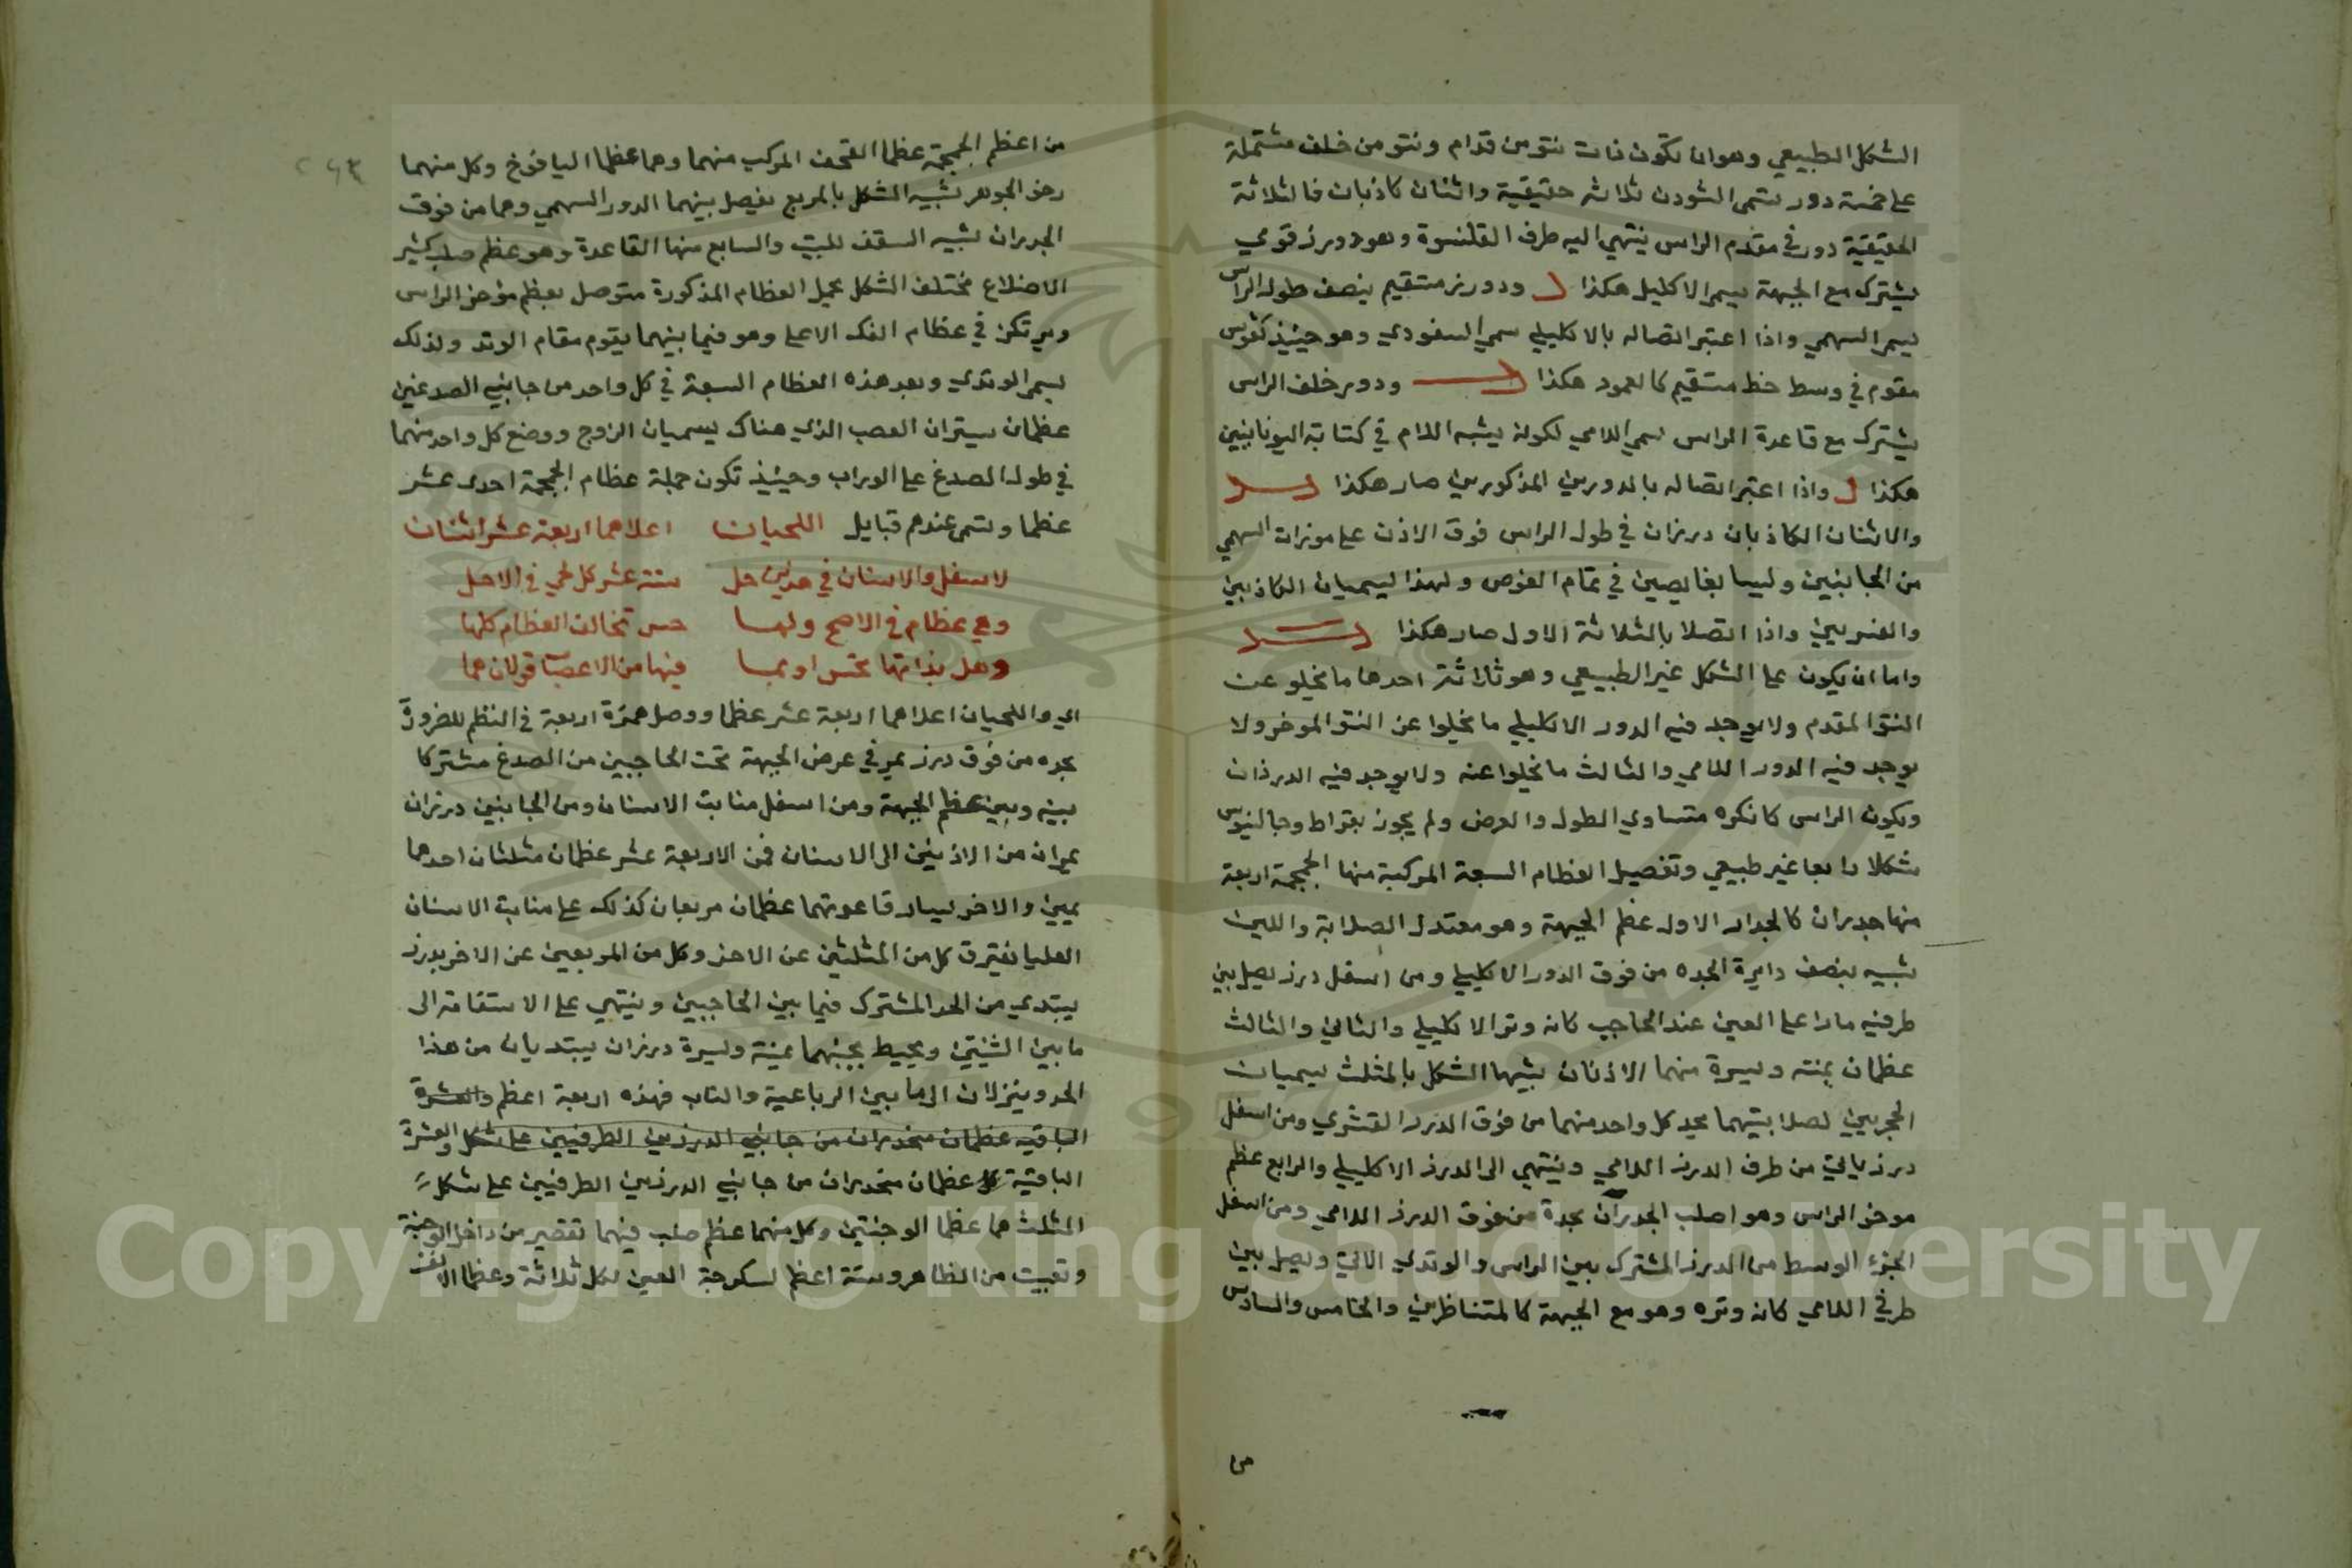 الشكل الطبيعي وهو ان تكون ذات نتو من قدام ونتو من خلف مشتملة
على خمسة دور تسمى الشودن ثلاثه حقيقية واثنان كاذبان فالثلاثة
الحقيقية دور في مقدم الراس ينتهي اليه طرف القلنسوة وهو درز قوسي
يشترك مع الجبهة يسمى الاكليل هكذا ودورز مستقيم ينصف طول الراس
يسمى السهمي واذا اعتبر اتصاله بالاكليلي سمي السفودي وهو حينئذ كقوس
مقوم في وسط خط مستقيم كالعمود هكذا ودور خلف الراس
يشترك مع قاعدة الراس يسمى اللامي لكونه يشبه اللام في كتابة اليونانيين
هكذا واذا اعتبر اتصاله بالدورين المذكورين صار هكذا
والاثنان الكاذبان درزان في طول الراس فوق الاذن على موزات السهمي
من الجانبين وليسا بغايصين في تمام الغوص ولهذا يسميان الكاذبين
والقشريين واذا اتصلا بالثلاثة الاول صار هكذا
واما ان يكون على الشكل غير الطبيعي وهو ثلاثة احدها ما يخلو عن
النتو المقدم ولا يوجد فيه الدور الاكليلي ما يخلوا عن النتو الموخر ولا
يوجد فيه الدور اللامي والثالث ما يخلوا عنه ولا يوجد فيه الدرزان
ويكون الراس كالكره متساوي الطول والعرض ولم يجوز بقراط وجالنيوس
شكلا رابعا غير طبيعي وتفصيل العظام السبعة المركبة منها الجمجمة اربعة
منها جدران كالجدار الاول عظم الجبهة وهو معتدل الصلابة واللين
شبيه بنصف دايرة الحده من فوق الدور الاكليلي ومن اسفل درز يصل بين
طرفيه مارا على العين عند الحاجب كانه وتر الاكليلي والثاني والثالث
عظمان يمنة ويسرة منهما الاذنان شبيها الشكل بالمثلث يسميان
الحجريين لصلابتيهما يحد كل واحد منهما من فوق الدرز القشري ومن اسفل
درز ياتي من طرف الدرز اللامي وينتهي الى الدرز الاكليلي والرابع عظم
موخر الراس وهو اصلب الجدران يحدة من فوق الدرز اللامي ومن اسفل
الجزء الوسط من الدرز المشترك بين الراس والوتدي الاتي ويصل بين
طرفي اللامي كانه وتره وهو مع الجبهة كالمتناظرين والخامس والسادس
من
من اعظم الجمجمة عظما القحف المركب منهما وهما عظما اليافوخ وكل منهما
رخو الجوهر شبيه الشكل بالمربع يفصل بينهما الدور السهمي وهما من فوق
الجدران شبيه السقف للبيت والسابع منها القاعدة وهو عظم صلب كثير
الاضلاع مختلف الشكل يحمل العظام المذكورة متوصل بعظم مؤخر الراس
ويرتكز في عظام الفك الاعلى وهو فيما بينهما يقوم مقام الوتد ولذلك
يسمى الوتدي وبعد هذه العظام السبعة في كل واحد من جانبي الصدغين
عظمان يستران العصب الذي هناك يسميان الزوج ووضع كل واحد منهما
في طول الصدغ على الوراب وحينئذ تكون جملة عظام الجمجمة احدى عشر
عظما وتسمى عندهم قبايل اللحيان اعلاهما اربعة عشر اثنان
لاسفل والاسنان في هذين حل ستة عشر كل لحي في الاصل
وهي عظام في الاصح ولها حس تخالف العظام كلها
وهل بذاتها تحس او بما فيها من الاعصاب قولان هما
اي واللحيان اعلاهما اربعة عشر عظما ووصل همزة اربعة في النظم للضرورة
يحده من فوق درز يمر في عرض الجبهة تحت الحاجبين من الصدغ مشتركا
بينه وبين عظم الجبهة ومن اسفل منابت الاسنان ومن الجانبين درزان
يمران من الاذنين الى الاسنان فمن الاربعة عشر عظمان مثلثان احدهما
يمين والاخر يسار قاعدتهما عظمان مربعان كذلك على منابت الاسنان
العليا يفترق كل من المثلثين عن الاخر وكل من المربعين عن الاخر بدرز
يبتدي من الحد المشترك فيما بين الحاجبين وينتهي على الاستقامة الى
ما بين الثنيتين ويحيط بجنبهما يمنة ويسرة درزان يبتديان من هذا
الحد وينزلان الى ما بين الرباعية والناب فهذه اربعة اعظم والعشرة
الباقيه عظمان منحدران من جانبي الدرزين الطرفيين على شكل والعشرة
الباقية عظمان منحدران من جانبي الدرزين الطرفيين على شكل
المثلث هما عظما الوجنتين وكل منهما عظم صلب فيهما تقصير من داخل الوجنة
وتقبيب من الظاهر وستة اعظم لسكرجة العين لكل ثلاثة وعظما الانف